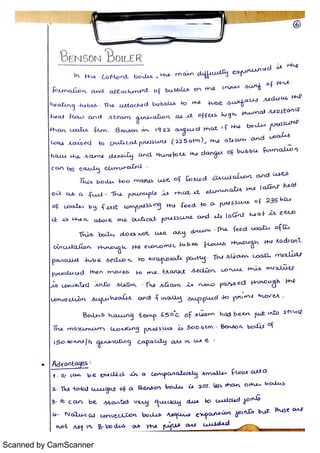 6
BENSON BOILER
In the LaMont boiler, the main difficulty experienced is the
formation and attachment of bubbles on the inner surf of the
heating tubes. The attached bubbles to the tube surfaces reduces the
heat flow and steam generation as it offers high thermal resistance
than water film. Benson in 1922 argued that if the boiler pressure
was raised to critical pressure (225 atm), the steam and water
have the same density and therefore the danger of bubble formation
can be easily eliminated.
This boiler too makes use of forced circulation and uses
oil as a fuel. The principle is that it eliminates the latent heat
of water by first compressing the feed to a pressure of 235 bar
it is then above the critical pressure and its latent heat is zero
This boiler does not use any drum. The feed water after
circulation through the economic tubes flows through the radiant
parallel tube section to evaporate partly. The steam water mixture
produced then moves to the transit section where this mixture
is converted into steam. The steam is now passed through the
convection superheater and finally supplied to prime mover.
Boilers having temp 650°C of steam has been put into service
The maximum working pressure is 500 atm. Benson boiler of
150 tonne/h generating capacity are in use.
• Advantages:
1. It can be erected in a comparatively smaller floor area
2. The total weight of a Benson boiler is 20% less than other boilers
3. It can be started very quickly due to welded joints
4. Natural convection boilers require expansion joints but these are
not req in B.boiler as the pipes are welded
Scanned by CamScanner